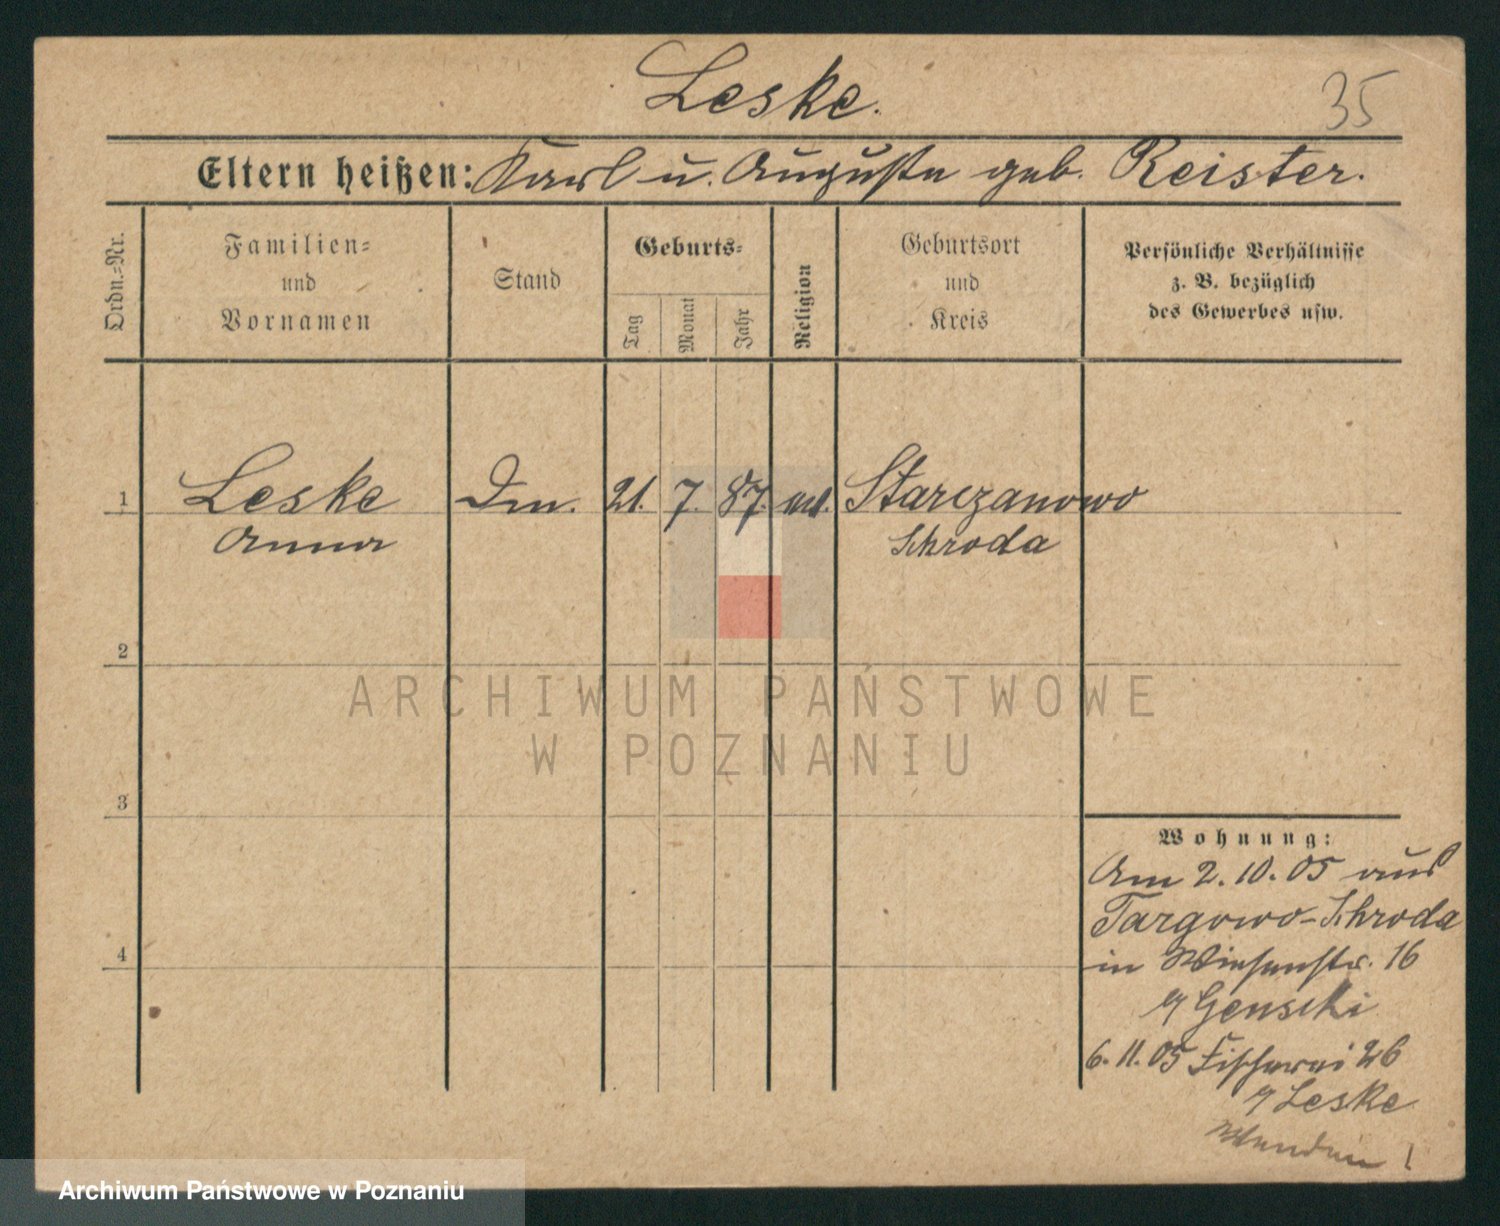 Leske.
35
Eltern heißen: Karl u. Auguste geb. Reister.
Ordn.-Nr.
Familien-
und
Vornamen
Stand
Geburts-
Tag
Monat
Jahr
Religion
Geburtsort
und
Kreis
Persönliche Verhältnisse
z. B. bezüglich
des Gewerbes usw.
1 Leske 21. 7. 87. Starczanowo
Anna Schroda
2
ARCHIWUM PAŃSTWOWE
W POZNANIU
3
Wohnung:
Am 2.10.05 aus
Targowo-Schroda
4
in Wiesenstr. 16
Genschi
6.11.05 Fischerei 26
Leske
Wenden!
Archiwum Państwowe w Poznaniu